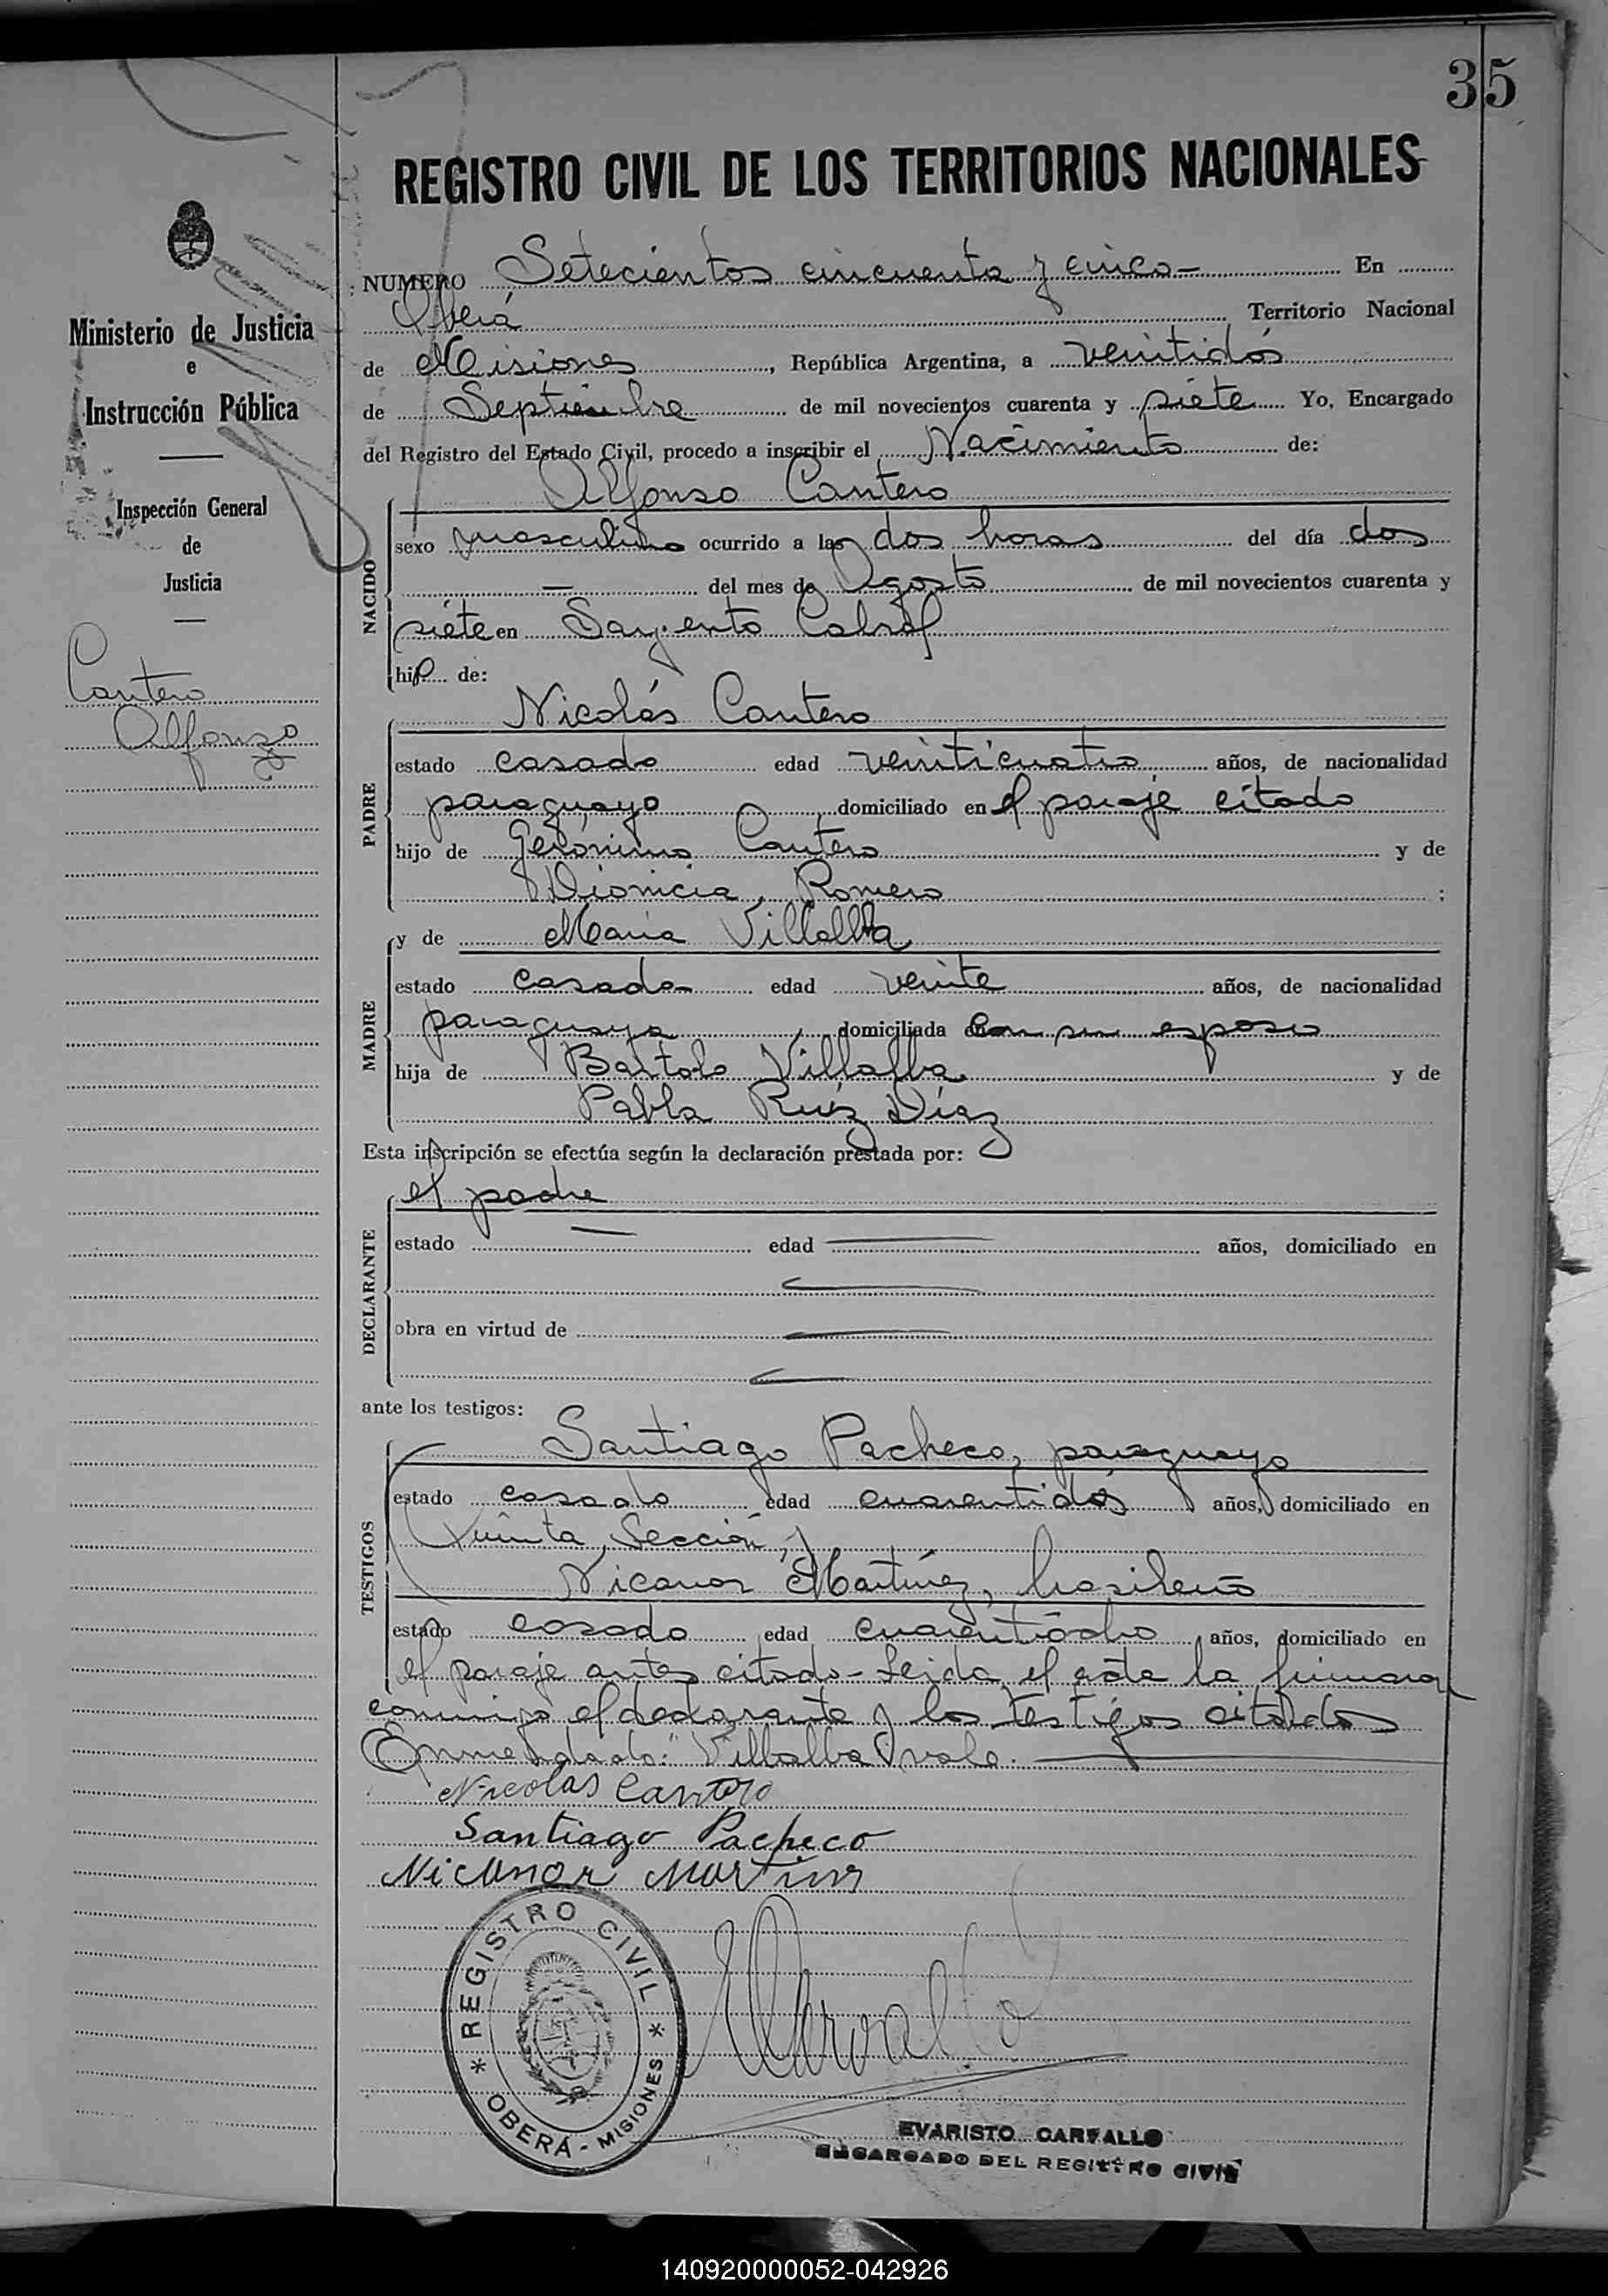 35
REGISTRO CIVIL DE LOS TERRITORIOS NACIONALES
NUMERO Setecientos cincuenta y cinco- En
Oberá Territorio Nacional
de Misiones, República Argentina, a veintidós
de Septiembre de mil novecientos cuarenta y siete Yo, Encargado
del Registro del Estado Civil, procedo a inscribir el Nacimiento de:
Alfonso Cantero
NACIDO
sexo masculino ocurrido a las dos horas del día dos
— del mes de Agosto de mil novecientos cuarenta y
siete en Sargento Cabral
hijo de:
Nicolás Cantero
PADRE
estado casado edad veinticuatro años, de nacionalidad
paraguayo domiciliado en el paraje citado
hijo de Gerónimo Cantero y de
Dionicia Romero ;
y de María Villalba
MADRE
estado casada edad veinte años, de nacionalidad
paraguaya domiciliada con su esposo
hija de Bartolo Villalba y de
Pabla Ruíz Díaz
Esta inscripción se efectúa según la declaración prestada por:
el padre
DECLARANTE
estado — edad — años, domiciliado en
—
obra en virtud de —
—
ante los testigos:
Santiago Pacheco, paraguayo
TESTIGOS
estado casado edad cuarentidós años, domiciliado en
Quinta Sección, y
Nicanor Martínez, brasileño
estado casado edad cuarentiocho años, domiciliado en
el paraje antes citado- Leida el acta la firmaron
conmigo el declarante y los testigos citados
Enmendado: "Villalba" vale. —
Nicolas Cantero
Santiago Pacheco
Nicanor Martins
REGISTRO CIVIL
* OBERÁ - MISIONES *
ECarvallo
EVARISTO CARVALLO
ENCARGADO DEL REGISTRO CIVIL
Ministerio de Justicia
e
Instrucción Pública
Inspección General
de
Justicia
Cantero
Alfonzo
140920000052-042926